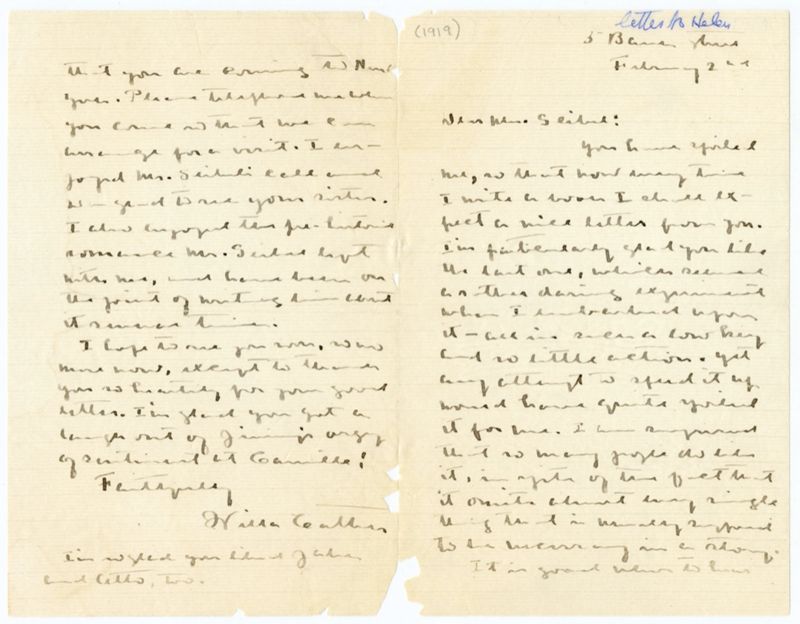 letter to Helen
(1919)
5 Bank Street
February 2nd
Dear Mrs. Seibel:
You have spoiled
me, so that now every time
I write a book I shall ex-
pect a nice letter from you.
I'm particularly glad you like
the last one, which seemed
a rather daring experiment
when I embarked upon
it - all in such a low key
and so little action. Yet
any attempt to speed it up
would have quite spoiled
it for me. I am surprised
that so many people do like
it, in spite of the fact that
it omits almost every single
thing that is usually supposed
to be necessary in a story.
It is good news to hear
that you are coming to New
York. Please telephone me when
you come so that we can
arrange for a visit. I en-
joyed Mr. Seibel's call and
was glad to see your sister.
I also enjoyed the pre-historic
romance Mr. Seibel left
with me, and have been on
the point of writing him about
it several times.
I hope to see you soon, so no
more now, except to thank
you so heartily for your good
letter. I'm glad you got a
laugh out of Jimmy's orgy
of sentiment at Camille!
Faithfully
Willa Cather
I'm so glad you liked Jake
and Otto, too.